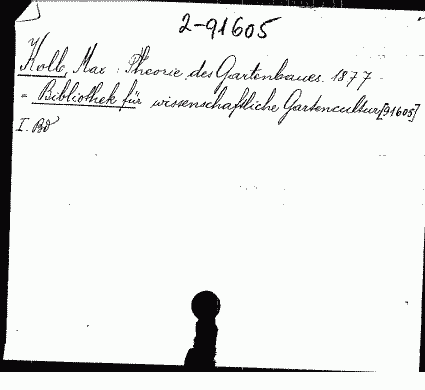 2-91605
Kolb, Max : Theorie des Gartenbaues. 1877 -
= Bibliothek für wissenschaftliche Gartencultur [91605]
I. Bd